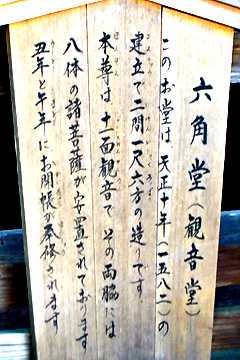 六角堂（観音堂）
このお堂は、天正十年（一五八二）の
建立で二間一尺六方の造りです
本尊は、十一面観音で、その両脇には
八体の諸菩薩が安置されております
丑年と午年にお開帳が奉修されます